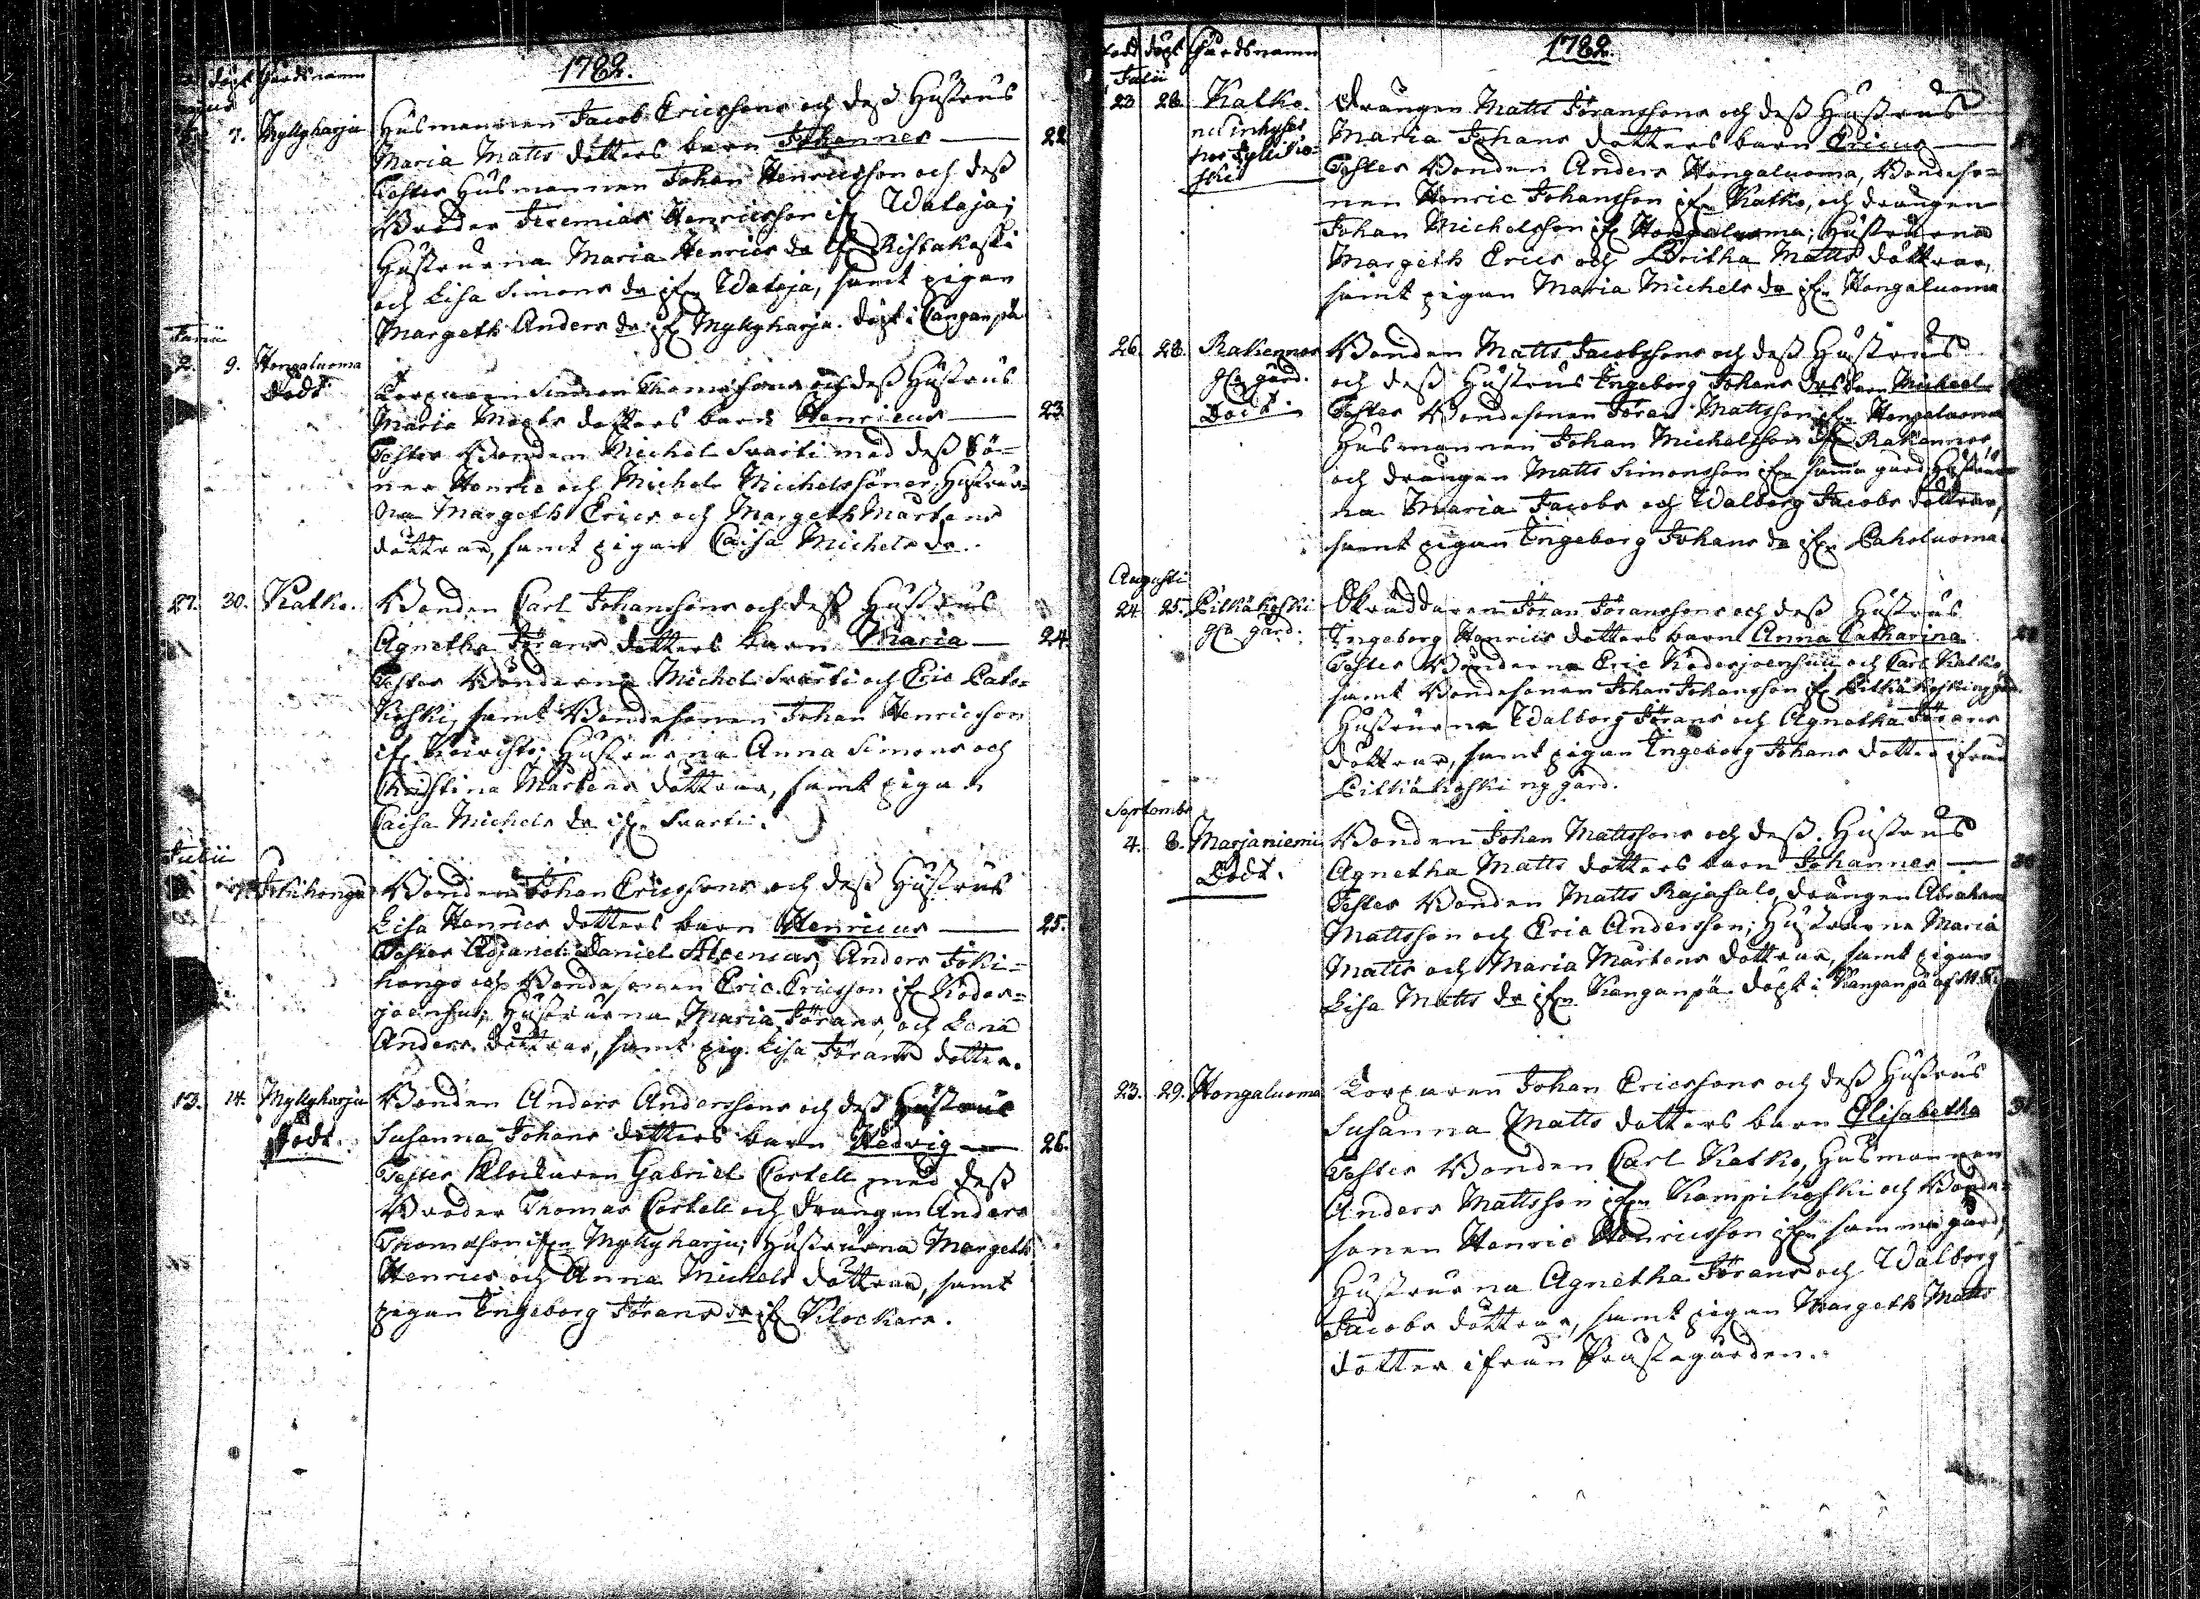 döpt Gårdsnamn
1782.
7. Myllyharju Husmannen Jacob Ericssons och dess Hustrus
Maria Matts dotters barn Johannes — 22
Testes Husmannen Johan Henricsson och dess
Broder Jeremias Henricsson ifr Wataja;
Hustrurna Maria Henrics dr ifr Ristakoski
och Lisa Simons dr ifrn Wataja, samt pigan
Margeth Anders dr ifr Myllyharju. döpt i Canganpä
Junii
2. 9. Hongaluoma
Torparen Simon Thomæsons och dess Hustrus
Död
Maria Matts dotters barn Henricus — 23
Testes Bonden Michel Svarti med dess Sö=
ner Henric och Michel Michelssöner, Hustrur=
na Margeth Erics och Margeth Mårtens
döttrar, samt pigan Caisa Michels dr.
27. 30. Katko. Bonden Carl Johanssons och dess Hustrus
Agnetha Jörans dotters barn Maria — 24
Testes Bönderna Michel Svarti och Eric Pato=
koski, samt Bondesonen Johan Henricsson
ifr Hustrurna Anna Simons och
Christina Mårtens döttrar, samt pigan
Caisa Michels dr ifr Svarti.
Julii
Jokihonga Bonden Johan Ericssons och dess Hustrus
Lisa Henrics dotters barn Henricus — 25.
Testes Adjunct. Daniel Alcenius, Anders Joki=
honga och Bondesonen Eric Ericsson ifr Kodes=
joensu; Hustrurna Maria Jörans, och Lena
Anders döttrar, samt pig. Lisa Jörans dotter.
13. 14. Myllyharju Bonden Anders Anderssons och dess Hustrus
Död. Susanna Johans dotters barn Hedvig — 26.
Testes Klockaren Gabriel Cortell med dess
Broder Thomas Cortell och drängen Anders
Thomæson ifrn Myllyharju; Hustrurna Margeth
Henrics och Anna Michels döttrar, samt
pigan Ingeborg Jörans dr ifr Klockars.
född döpt Gårdsnamn
1782.
Julii
23 28. Katko. Drängen Matts Jöranssons och dess Hustrus
nu inhyses Maria Johans dotters barn Ericus —
hos
Testes Bonden Anders Hongaluoma, Bondeso=
nen Henric Johansson ifrn Katko, och drängen
Johan Michelsson ifr Hongaluoma; Hustrurna
Margeth Erics och Britha Matts döttrar,
samt pigan Maria Michels dr ifrn Hongaluoma
26. 28. Rakennos Bonden Matts Jacobssons och dess Hustrus
gård. och dess Hustrus Ingeborg Johans drs barn Michael
Död. Testes Bondesonen Jöran Mattsson ifrn Hongaluoma
Husmannen Johan Michelsson ifr Rakennos
och drängen Matts Simonsson ifrn samma gård, Hustrur
na Maria Jacobs och Walborg Jacobs döttrar,
samt pigan Ingeborg Johans dr ifrn Paholuoma
Augusti
24. 25. Pitkäkoski Skräddaren Jöran Jöranssons och dess Hustrus
gård. Ingeborg Henrics dotters barn Anna Catharina
Testes Bönderna Eric Kodesjoensuu och Carl Katko,
samt Bondesonen Johan Johansson ifr Pitkäkoski ny gård
Hustrurna Walborg Jörans och Agnetha Jörans
döttrar, samt pigan Ingeborg Johans dotter ifrån
Pitkäkoski ny gård.
Septembr
4. 8. Marjaniemi Bonden Johan Mattssons och dess Hustrus
Död. Agnetha Matts dotters barn Johannes — 30
Testes Bonden Matts Rajasalo, drängen Abraham
Mattsson och Eric Andersson; Hustrurna Maria
Matts och Maria Mårtens döttrar, samt pigan
Lisa Matts dr ifrn Kanganpä. döpt i Kanganpä af
23. 29. Hongaluoma Torparen Johan Ericssons och dess Hustrus
Susanna Matts dotters barn Elisabetha 31
Testes Bonden Carl Katko, Husmannen
Anders Mattsson ifrn Kampikoski och Bonde=
sonen Henric Henricsson ifrn samma gård,
Hustrurna Agnetha Jörans och Walborg
Jacobs döttrar, samt pigan Margeth Matts
dotter ifrån Prästegården.